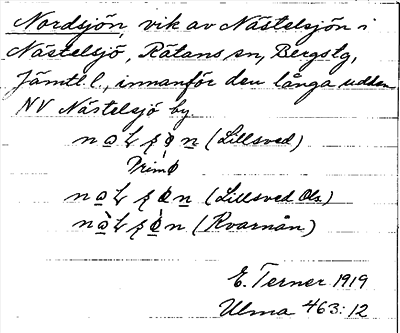 Nordsjön, vik av Nästelsjön i
Nästelsjö, Rätans sn, Bergs tg,
Jämtl. l., innanför den långa udden
NV Nästelsjö by.
(Lillsved)
(Lillsved Ols.)
(Kvarnån)
E. Terner 1919
Ulma 463:12